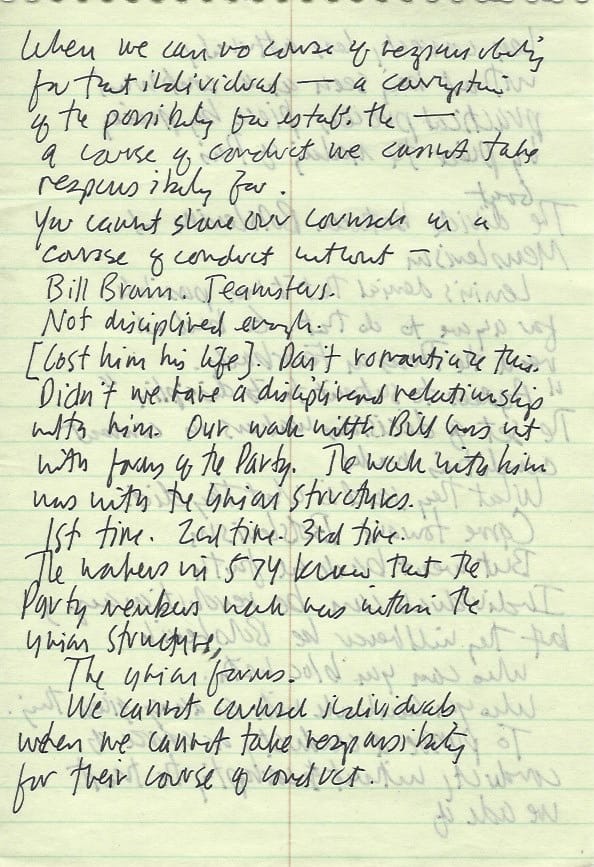 When we can no course of responsibility
for that individual — a corruption
of the possibility for estab. the —
a course of conduct we cannot take
responsibility for.
You cannot share our counsels in a
course of conduct without —
Bill Brown. Teamsters.
Not disciplined enough.
[Cost him his life]. Don't romanticize this.
Didn't we have a disciplined relationship
with him. Our work with Bill was not
with forms of the Party. The work with him
was with the Union structures.
1st time. 2nd time. 3rd time.
The workers in 574 knew that the
Party members work was within the
union structure,
The union forms.
We cannot counsel individuals
when we cannot take responsibility
for their course of conduct.